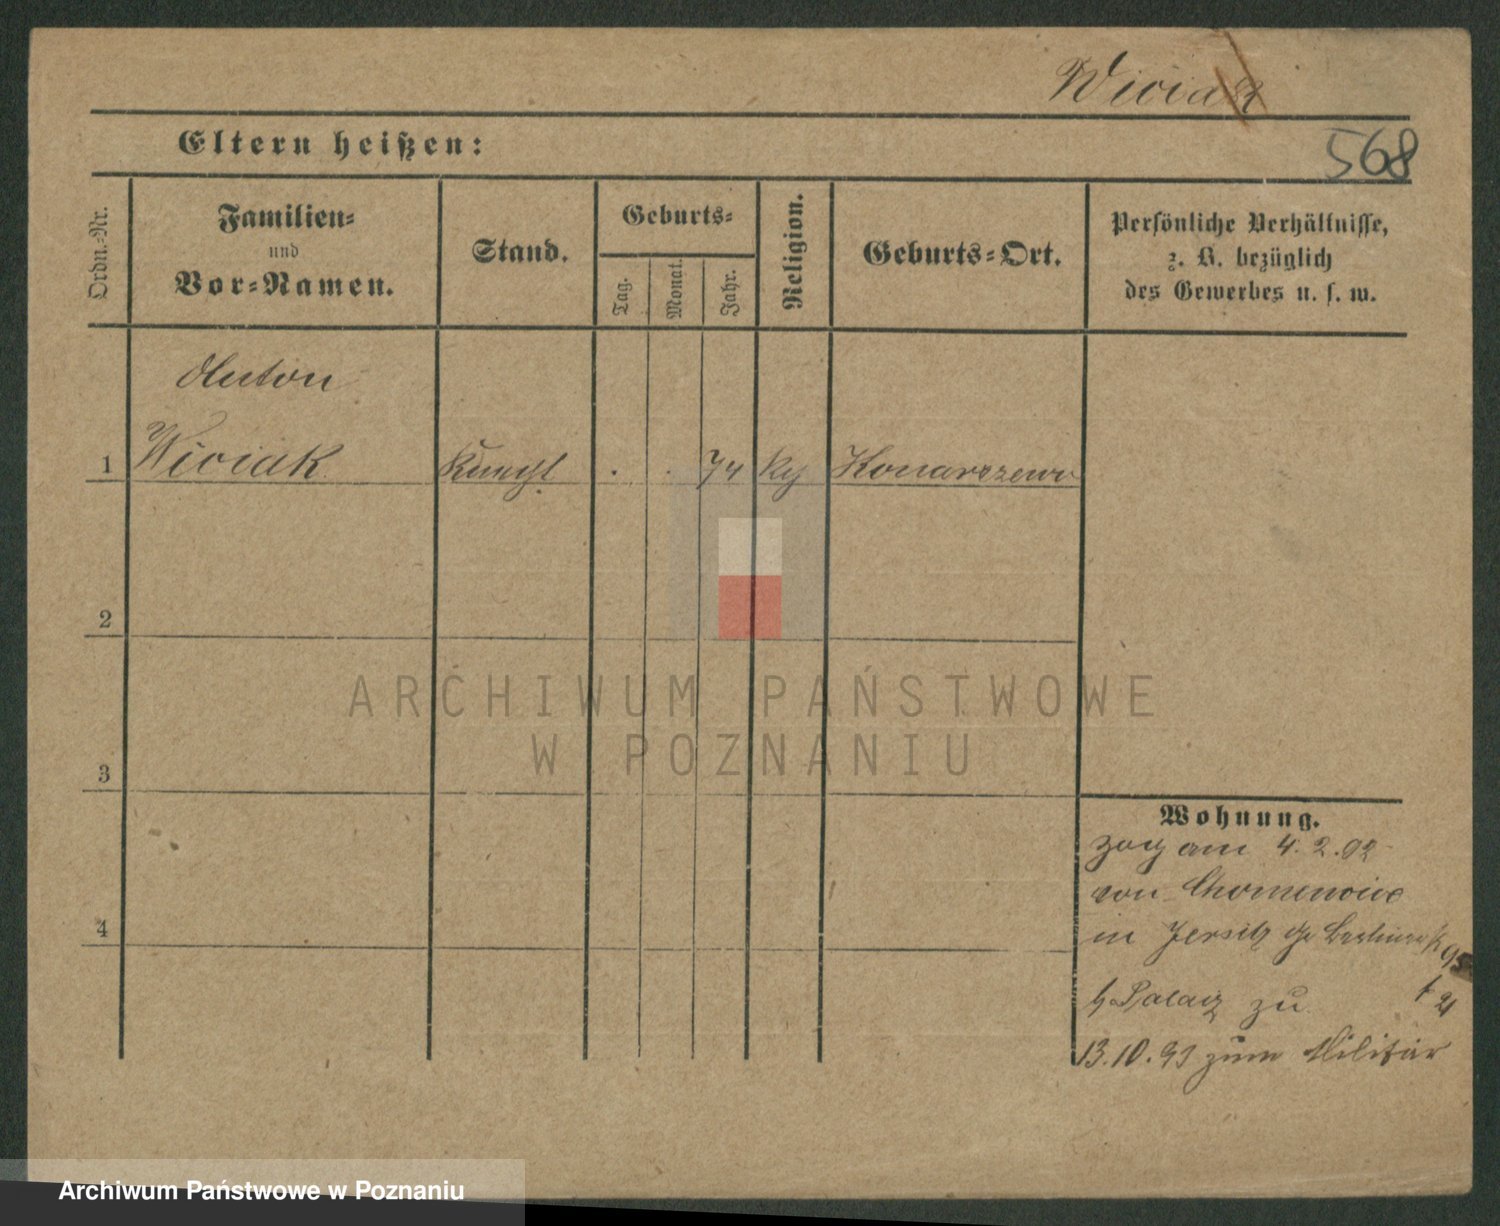 Wiciak
568
Eltern heißen:
Ordn.-Nr.
Familien-
und
Vor-Namen.
Stand.
Geburts-
Tag.
Monat.
Jahr.
Religion.
Geburts-Ort.
Persönliche Verhältnisse,
z. B. bezüglich
des Gewerbes u. s. w.
Anton
1 Wiciak 74 Konarzewo
2
3
4
ARCHIWUM PAŃSTWOWE
W POZNANIU
Wohnung.
zog am 4.2.92
von
in Jersitz
zu
13.10.93 zum Militär
Archiwum Państwowe w Poznaniu